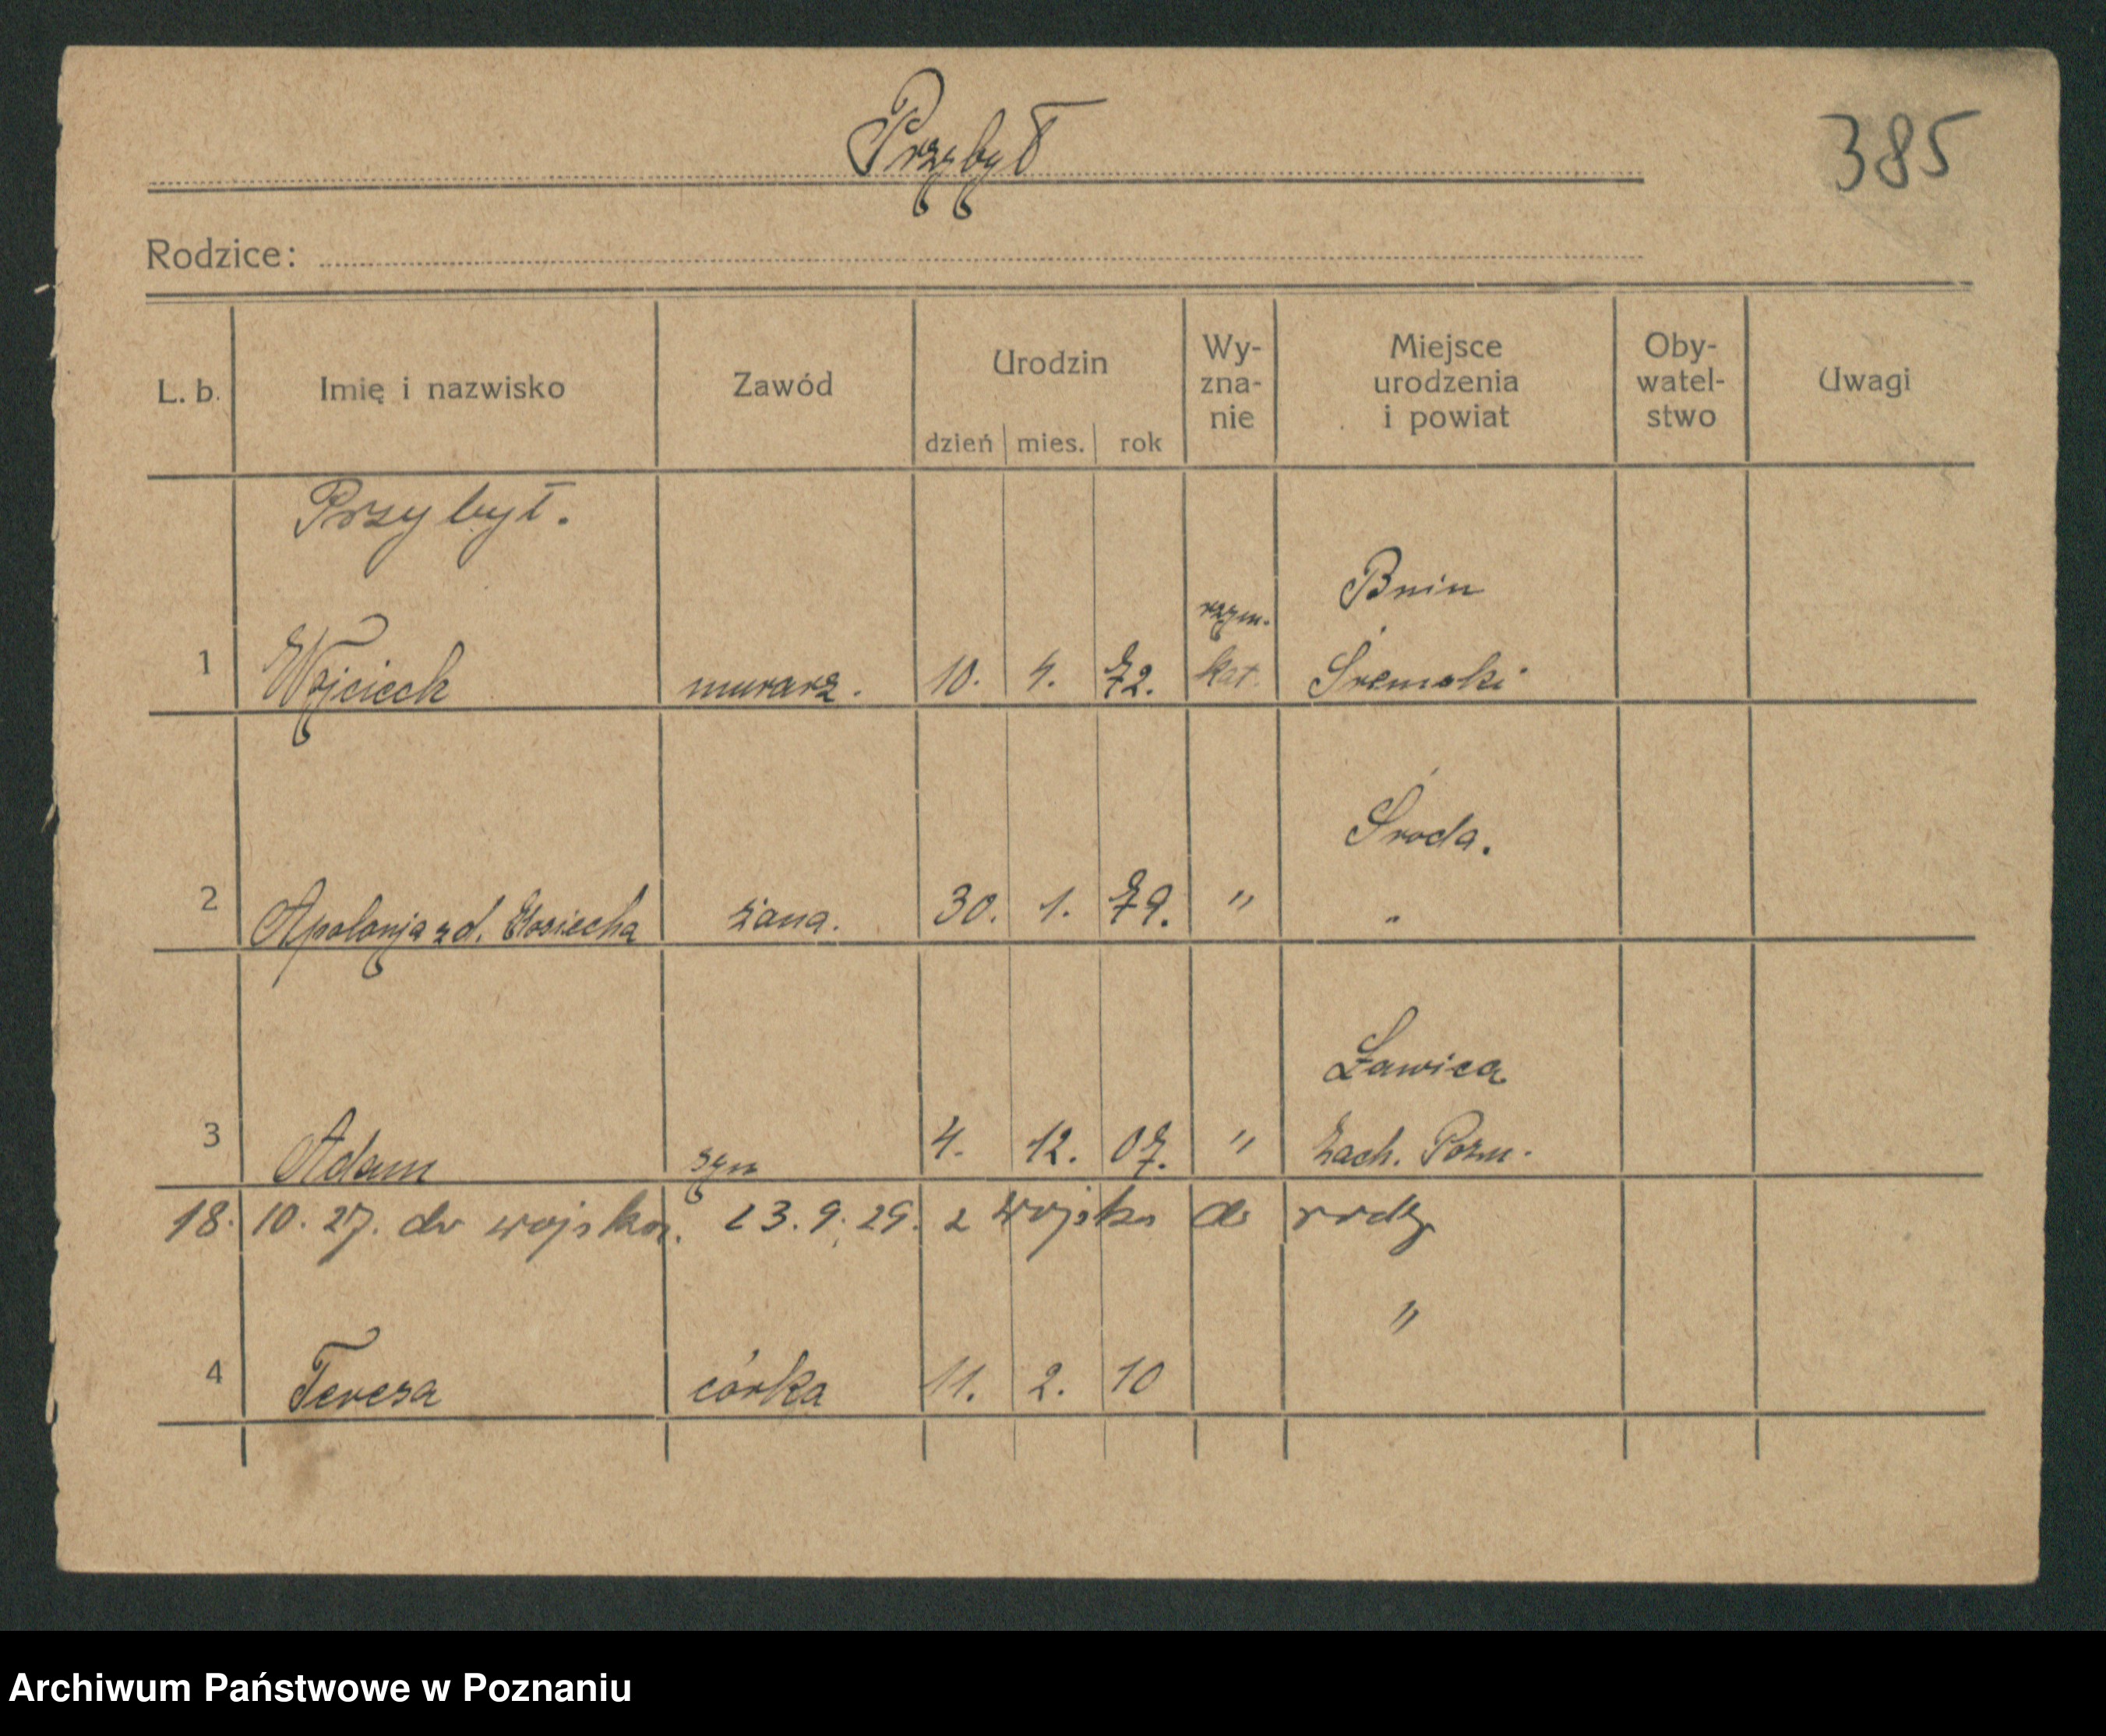 Przybył
385
Rodzice:
L. b. Imię i nazwisko Zawód Urodzin dzień mies. rok Wy-zna-nie Miejsce urodzenia i powiat Oby-watel-stwo Uwagi
Przybył.
Bnin
rzym.
1 Wojciech murarz. 10. 4. 72. kat. Śremski
Środa.
2 Apolonja z d. żona. 30. 1. 79. " "
Ławica
3 Adam syn 4. 12. 07. " Zach. Pozn.
18. 10. 27. do wojska. 23. 9. 29. z wojska do rodz
"
4 Teresa córka 11. 2. 10
Archiwum Państwowe w Poznaniu